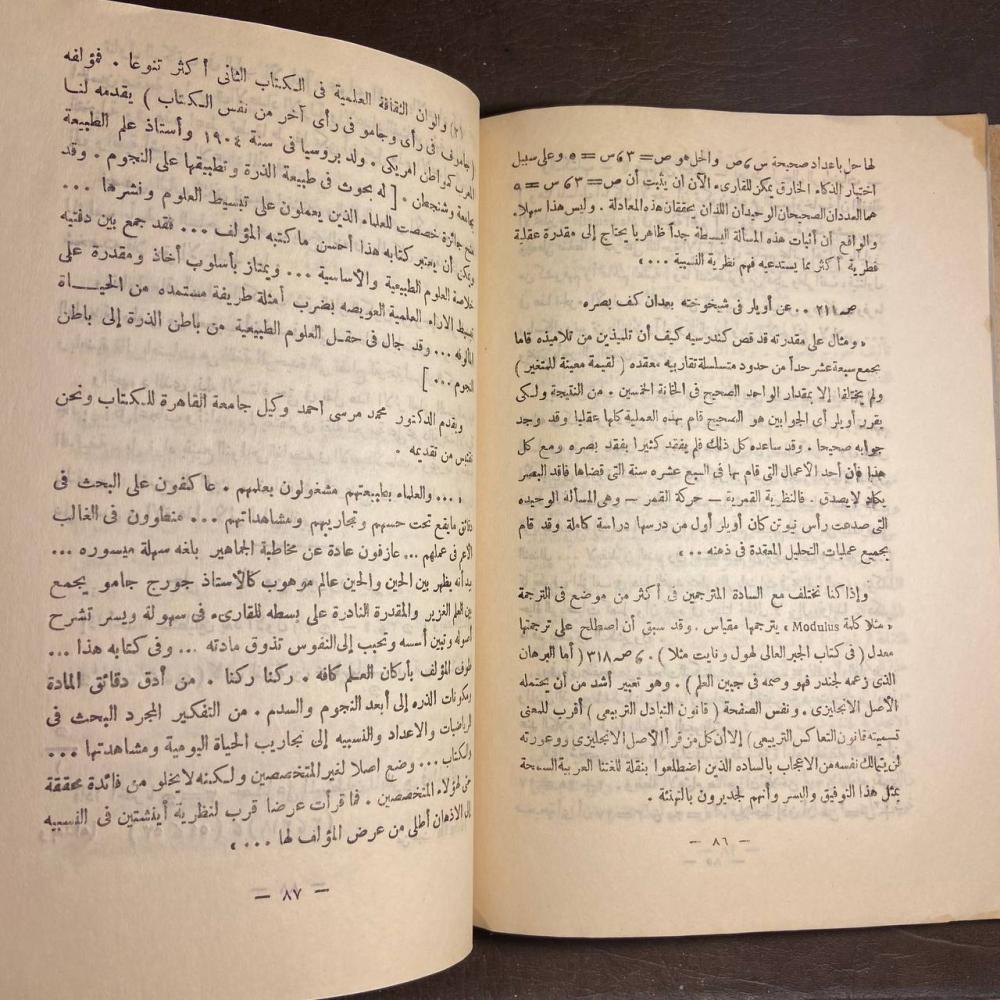 لها حل باعداد صحيحة س ، ص والحل هو ص = ٣ ، س = ٥ وعلى سبيل
اختبار الذكاء الخارق يمكن للقارىء الآن ان يثبت أن ص = ٣ ، س = ٥
هما العددان الصحيحان الوحيدان اللذان يحققان هذه المعادلة . وليس هذا سهلا .
والواقع أن أثبات هذه المسألة البسطة جداً ظاهريا يحتاج إلى مقدرة عقلية
فطرية أكثر مما يستدعيه فهم نظرية النسبية ... ،
صـ ٢١١ .. عن أويلر فى شيخوخته بعدان كف بصره
، ومثال على مقدرته قد قص كندرسيه كيف أن تلميذين من تلاميذه قاما
بجمع سبعة عشر حداً من حدود متسلسلة تقاربيه معقده ( لقيمة معينة للمتغير )
ولم يختلفا إلا بمقدار الواحد الصحيح فى الخانة الخمسين . من النتيجة ولكى
يقرر أويلر أى الجوابين هو الصحيح قام بهذه العملية كلها عقليا وقد وجد
جوابه صحيحا . وقد ساعده كل ذلك فلم يفقد كثيرا بفقد بصره ومع كل
هذا فان أحد الأعمال التى قام بها فى السبع عشره سنة التى قضاها فاقد البصر
يكاد لا يصدق . فالنظرية القمرية — حركة القمر — وهى المسألة الوحيده
التى صدعت رأس نيوتن كان أويلر أول من درسها دراسة كاملة وقد قام
بجميع عمليات التحليل المعقدة فى ذهنه ... ،
وإذا كنا نختلف مع السادة المترجمين فى أكثر من موضع فى الترجمة
« مثلا كلمة Modulus » يترجمها مقياس . وقد سبق أن اصطلح على ترجمتها
معدل ( فى كتاب الجبر العالى لهول ونايت مثلا ) . ، صـ ٣١٨ ( أما البرهان
الذى زعمه لجندر فهو وصمه فى جبين العلم ) . وهو تعبير أشد من أن يحتمله
الأصل الانجليزى . ونفس الصفحة ( قانون التبادل التربيعى ) أقرب للمعنى
تسميته قانون التعاكس التربيعى ) إلا أن كل من قرأ الأصل الانجليزى ووعورته
لن يتمالك نفسه من الاعجاب بالساده الذين اضطلعوا بنقلة للغتنا العربية السمحة
بمثل هذا التوفيق واليسر وأنهم لجديرون بالتهنئة .
— ٨٦ —
(٢) والوان الثقافة العلمية فى الكتاب الثانى أكثر تنوعا . فمؤلفه
( جامرف فى رأى وجامو فى رأى آخر من نفس الكتاب ) يقدمه لنا
المعرب كمواطن امريكى . ولد بروسيا فى سنة ١٩٠٤ وأستاذ علم الطبيعة
بجامعة وشنجطن . [ له بحوث فى طبيعة الذرة وتطبيقها على النجوم . وقد
منح جائزة خصصت للعلماء الذين يعملون على تبسيط العلوم ونشرها ...
ويمكن أن يعتبر كتابه هذا أحسن ما كتبه المؤلف ... فقد جمع بين دفتيه
خلاصة العلوم الطبيعية والأساسية ... ويمتاز بأسلوب أخاذ ومقدرة على
تبسيط الاراء العلمية العويصه بضرب أمثلة طريفة مستمده من الحيـاة
المألوفه ... وقد جال فى حقل العلوم الطبيعية من باطن الذرة إلى باطن
النجوم ... ]
ويقدم الدكتور محمد مرسى أحمد وكيل جامعة القاهرة للكتاب ونحن
نقتبس من تقديمه .
، ... والعلماء بطبيعتهم مشغولون بعلمهم . عاكفون على البحث فى
دقائق ما يقع تحت حسهم وتجاريبهم ومشاهداتهم ... منطوون فى الغالب
الأعم فى عملهم ... عازفون عادة عن مخاطبة الجماهير بلغه سهلة ميسوره ...
بيد أنه يظهر بين الحين والحين عالم موهوب كالأستاذ جورج جامو يجمع
بين العلم الغزير والمقدرة النادرة على بسطه للقارىء فى سهولة ويسر تشرح
أصوله وتبين أسسه وتحبب إلى النفوس تذوق مادته ... وفى كتابه هذا ...
طوف المؤلف بأركان العلم كافه . ركنا ركنا . من أدق دقائق المادة
ومكونات الذره إلى أبعد النجوم والسدم . من التفكير المجرد البحث فى
الرياضيات والاعداد والنسبيه إلى تجاريب الحياة اليومية ومشاهدتها ...
والكتاب ... وضع اصلا لغير المتخصصين ولكنه لا يخلو من فائدة محققة
حتى لهؤلاء المتخصصين . فما قرأت عرضا قرب لنظرية أينشتين فى النسبيه
إلى الاذهان أطلى من عرض المؤلف لها ... ،
— ٨٧ —